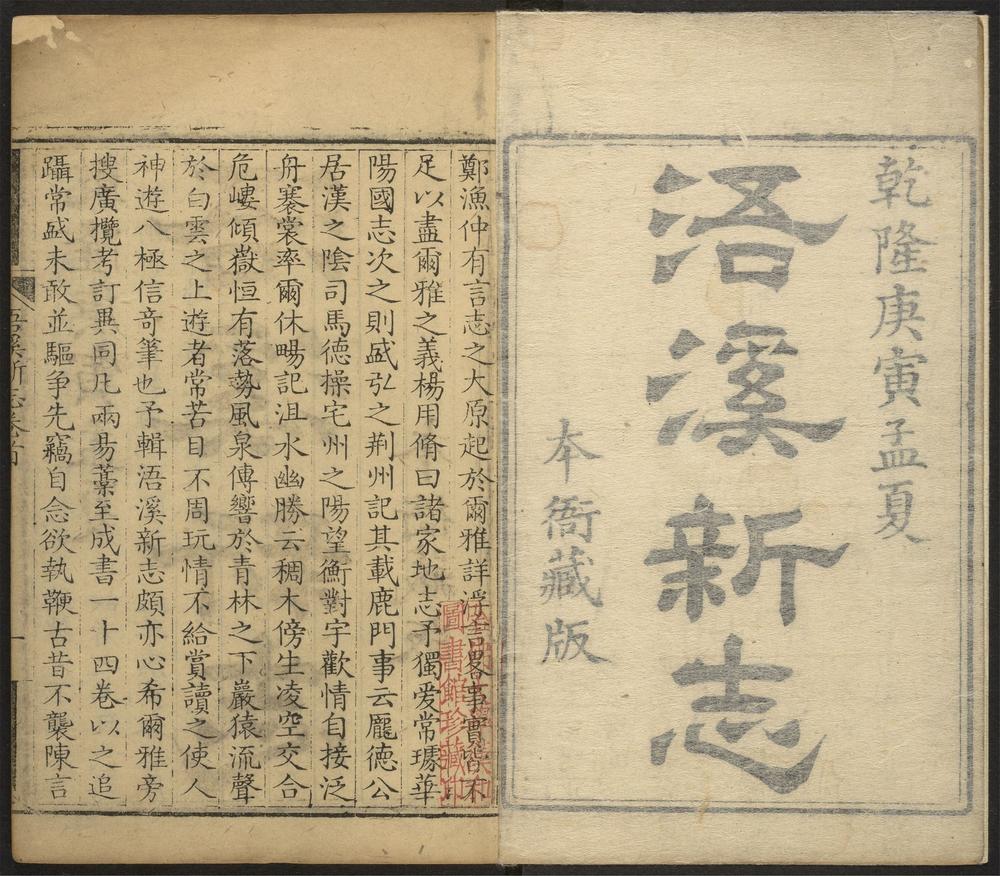 乾隆庚寅孟夏
浯溪新志
本衙藏版
鄭漁仲有言志之大原起於爾雅詳浮言畧事實皆不
足以盡爾雅之義楊用脩曰諸家地志予獨爱常璩華
陽國志次之則盛弘之荆州記其載鹿門事云龐德公
居漢之陰司馬德操宅州之陽望衡對宇歡情自接泛
舟褰裳率爾休暢記沮水幽勝云稠木傍生凌空交合
危嶁傾嶽恒有落勢風泉傳響於青林之下巖猿流聲
於白雲之上遊者常苦目不周玩情不給賞讀之使人
神遊八極信奇筆也予輯浯溪新志頗亦心希爾雅旁
搜廣攬考訂異同凡兩易藁至成書一十四卷以之追
躡常盛未敢並驅争先竊自念欲執鞭古昔不襲陳言
浯溪新志卷首
一
圖書館珍藏印